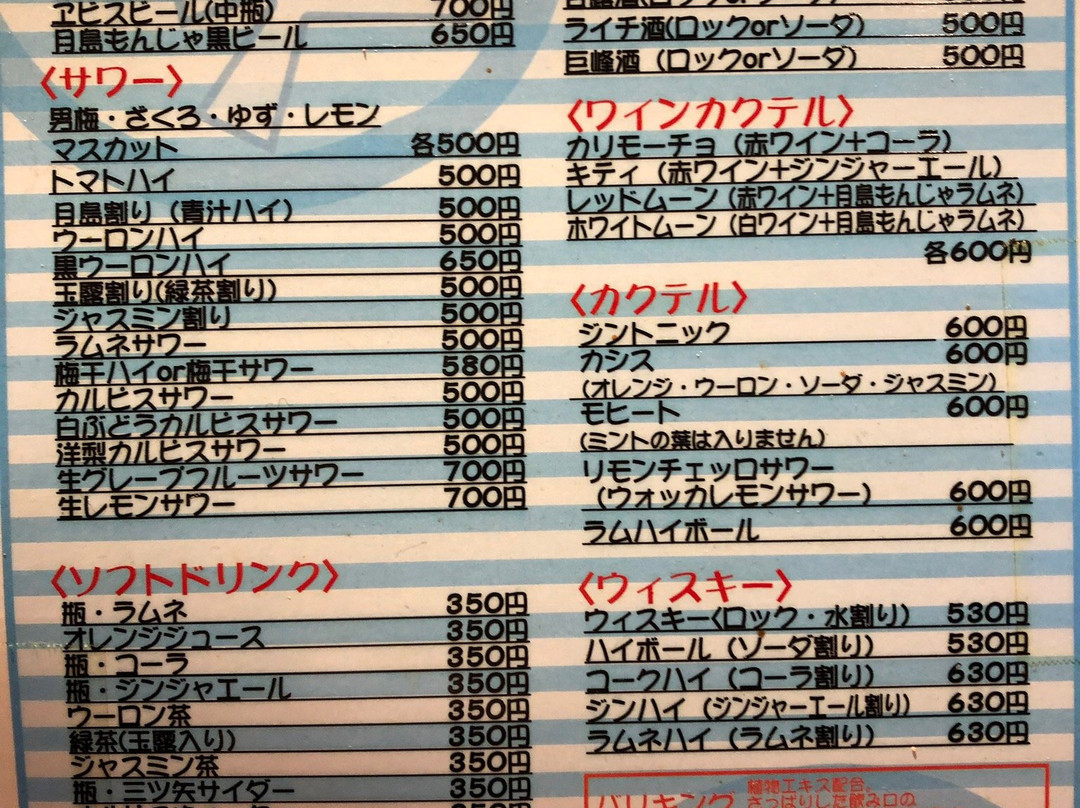 ヱビスビール(中瓶) 700円
月島もんじゃ黒ビール 650円
〈サワー〉
男梅・ざくろ・ゆず・レモン
マスカット 各500円
トマトハイ 500円
月島割り（青汁ハイ） 500円
ウーロンハイ 500円
黒ウーロンハイ 650円
玉露割り(緑茶割り) 500円
ジャスミン割り 500円
ラムネサワー 500円
梅干ハイor梅干サワー 580円
カルピスサワー 500円
白ぶどうカルピスサワー 500円
洋梨カルピスサワー 500円
生グレープフルーツサワー 700円
生レモンサワー 700円
〈ソフトドリンク〉
瓶・ラムネ 350円
オレンジジュース 350円
瓶・コーラ 350円
瓶・ジンジャエール 350円
ウーロン茶 350円
緑茶(玉露入り) 350円
ジャスミン茶 350円
瓶・三ツ矢サイダー 350円
ライチ酒(ロックorソーダ) 500円
巨峰酒（ロックorソーダ） 500円
〈ワインカクテル〉
カリモーチョ（赤ワイン+コーラ）
キティ（赤ワイン+ジンジャーエール）
レッドムーン（赤ワイン+月島もんじゃラムネ）
ホワイトムーン（白ワイン+月島もんじゃラムネ）
各600円
〈カクテル〉
ジントニック 600円
カシス 600円
（オレンジ・ウーロン・ソーダ・ジャスミン）
モヒート 600円
(ミントの葉は入りません)
リモンチェッロサワー
（ウォッカレモンサワー） 600円
ラムハイボール 600円
〈ウィスキー〉
ウィスキー〈ロック・水割り） 530円
ハイボール（ソーダ割り） 530円
コークハイ（コーラ割り） 630円
ジンハイ（ジンジャーエール割り） 630円
ラムネハイ（ラムネ割り） 630円
バリキング 植物エキス配合。
さっぱりした飲み口の